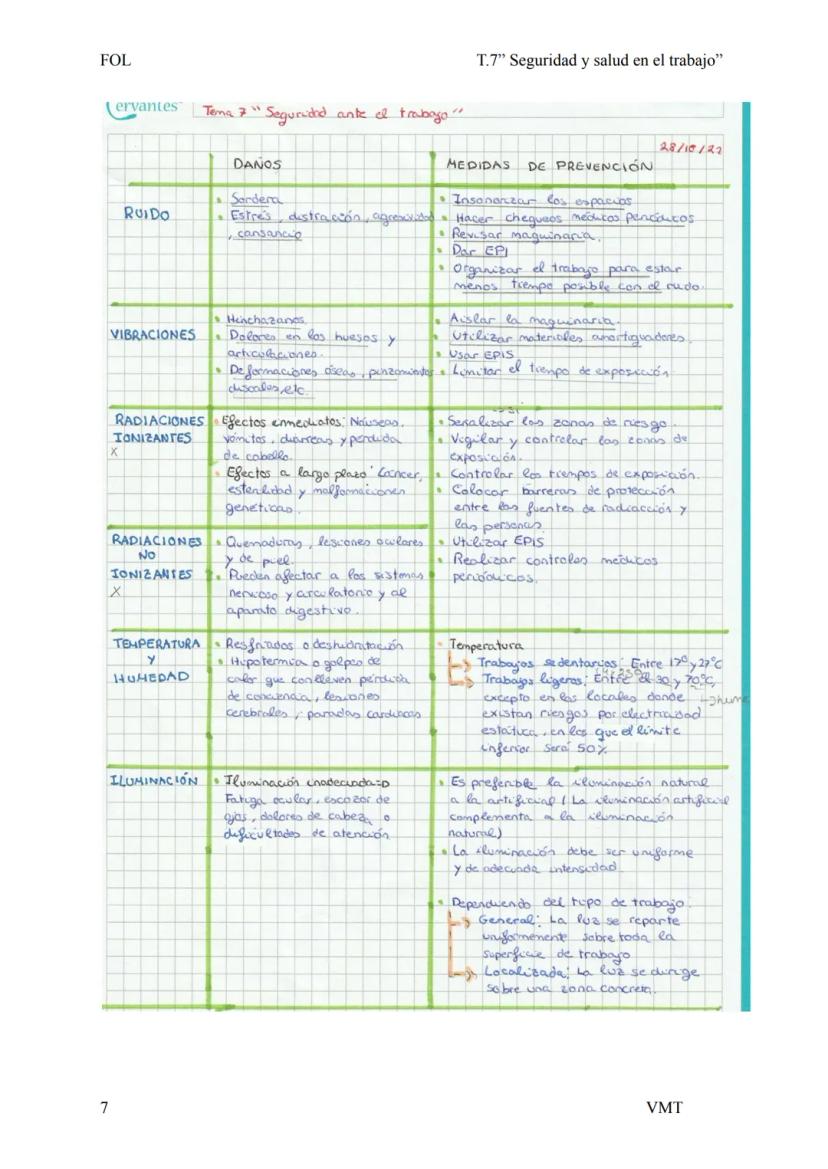 FOL
T.7” Seguridad y salud en el trabajo”
Cervantes
Tema 7 “Seguridad ante el trabajo”
28/10/22
DAÑOS
MEDIDAS DE PREVENCIÓN
RUIDO
• Sordera
• Estrés, distracción, agresividad
, cansancio
• Insonorizar los espacios
• Hacer chequeos médicos periódicos
• Revisar maquinaria.
• Dar EPI
• Organizar el trabajo para estar
menos tiempo posible con el ruido.
VIBRACIONES
• Hinchazones
• Dolores en los huesos y
articulaciones.
• Deformaciones óseas, pinzamientos
discales, etc.
• Aislar la maquinaria.
• Utilizar materiales amortiguadores.
• Usar EPIS
• Limitar el tiempo de exposición.
RADIACIONES
IONIZANTES
X
• Efectos inmediatos: Náuseas,
vómitos, diarreas y pérdida
de cabello.
• Efectos a largo plazo: Cáncer,
esterilidad y malformaciones
genéticas.
• Señalizar las zonas de riesgo.
• Vigilar y controlar las zonas de
exposición.
• Controlar los tiempos de exposición.
• Colocar barreras de protección
entre las fuentes de radiacción y
las personas.
• Utilizar EPIS
• Realizar controles médicos
periódicos.
RADIACIONES
NO
IONIZANTES
X
• Quemaduras, lesiones oculares
y de piel.
• Pueden afectar a los sistemas
nervioso y circulatorio y al
aparato digestivo.
TEMPERATURA
Y
HUMEDAD
• Resfriados o deshidratación
• Hipotermia o golpes de
calor que conlleven pérdida
de conciencia, lesiones
cerebrales, paradas cardiacas
• Temperatura
Trabajos sedentarios: Entre 17º y 27ºC
Trabajos ligeros: Entre el 30 y 70ºC,
excepto en los locales donde
existan riesgos por electricidad
estática, en los que el límite
inferior será 50%
ILUMINACIÓN
• Iluminación inadecuada =>
Fatiga ocular, escozor de
ojos, dolores de cabeza o
dificultades de atención
• Es preferible la iluminación natural
a la artificial (La iluminación artificial
complementa a la iluminación
natural)
• La iluminación debe ser uniforme
y de adecuada intensidad.
• Dependiendo del tipo de trabajo:
General: La luz se reparte
uniformemente sobre toda la
superficie de trabajo
Localizada: La luz se dirige
sobre una zona concreta.
7
VMT